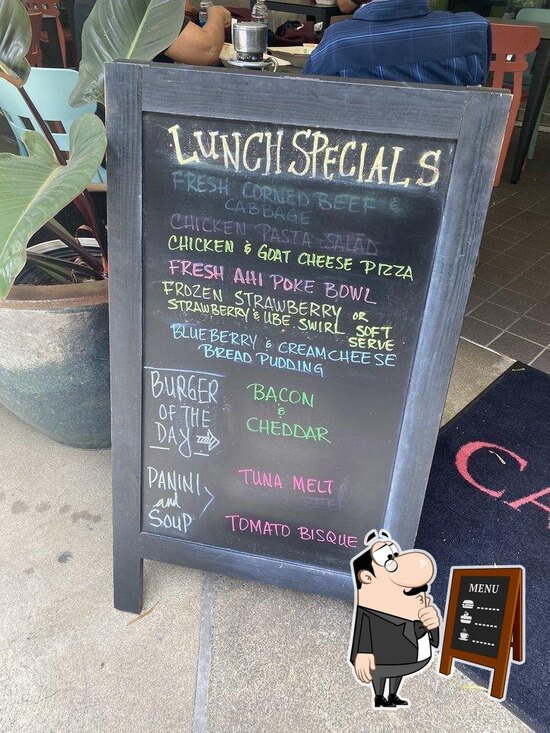 LUNCH SPECIALS
FRESH CORNED BEEF &
CABBAGE
CHICKEN PASTA SALAD
CHICKEN & GOAT CHEESE PIZZA
FRESH AHI POKE BOWL
FROZEN STRAWBERRY OR
STRAWBERRY & UBE SWIRL SOFT
SERVE
BLUEBERRY & CREAMCHEESE
BREAD PUDDING
BURGER
OF THE
DAY
BACON
&
CHEDDAR
PANINI
and
SOUP
TUNA MELT
TOMATO BISQUE
CA
MENU